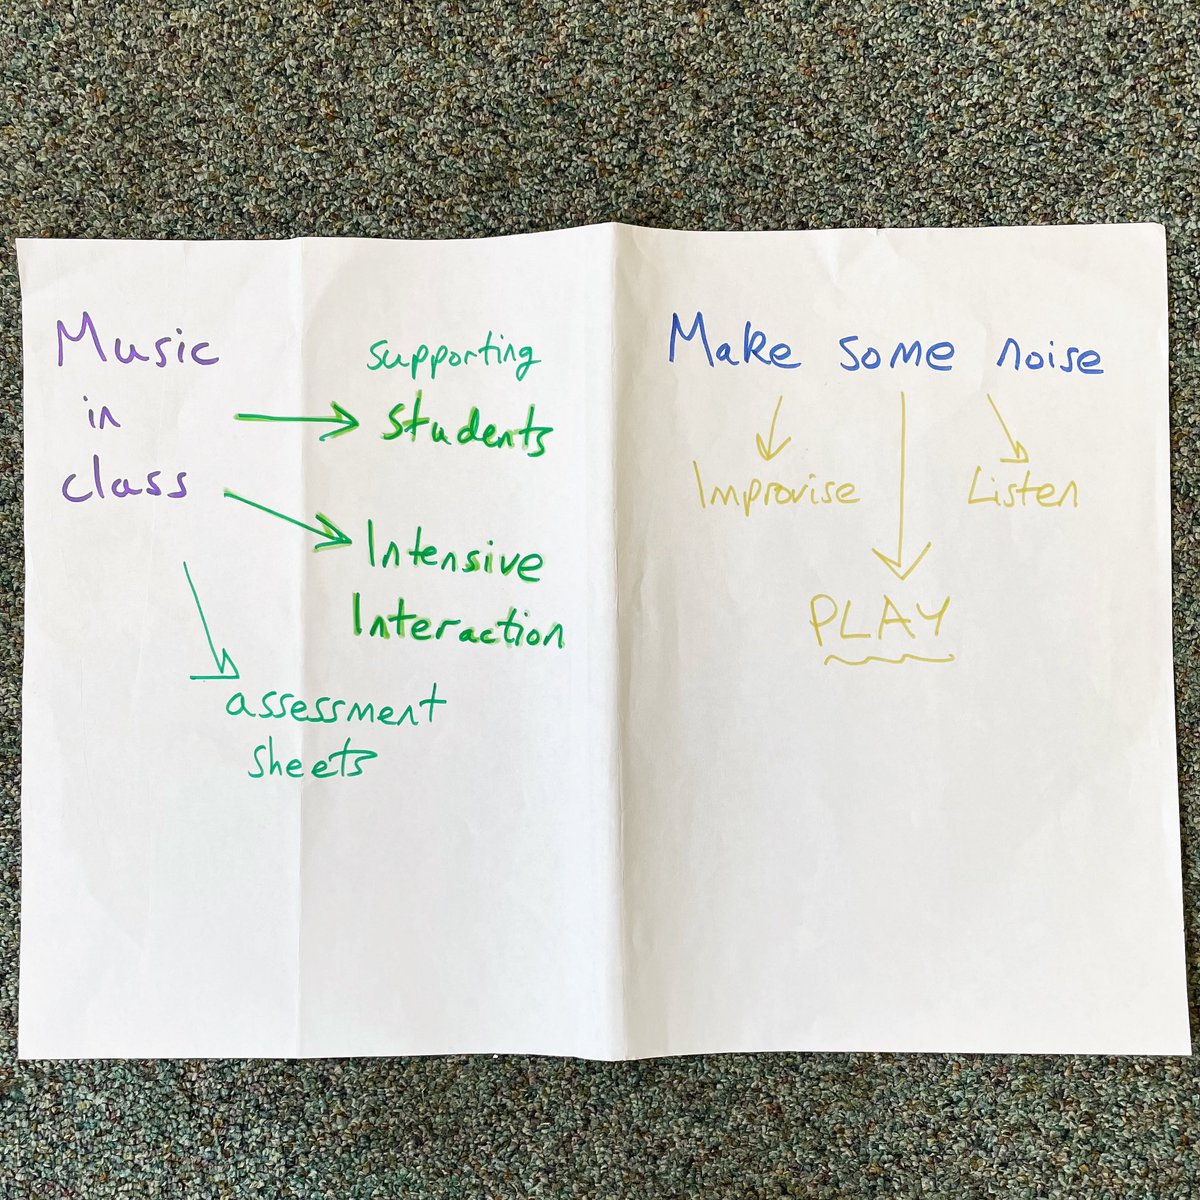 Music
in
class
supporting
students
Intensive
Interaction
assessment
sheets
Make some noise
Improvise
Listen
PLAY